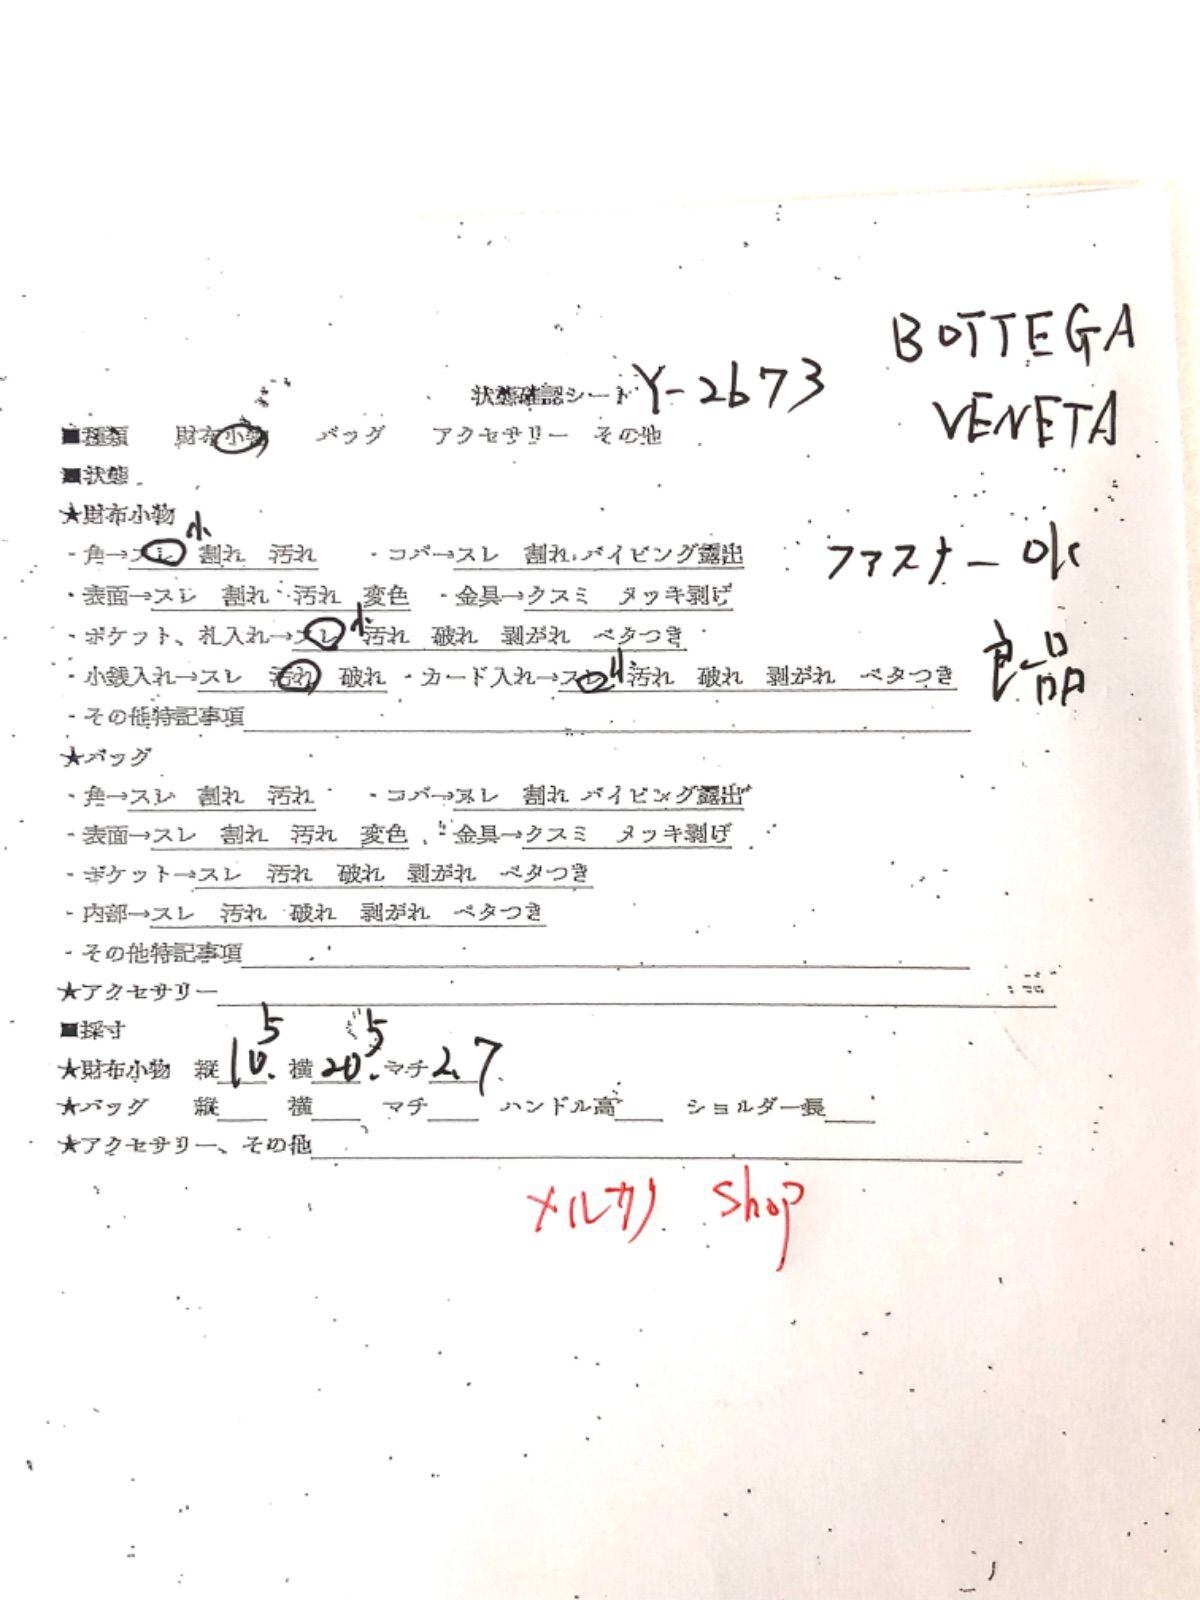 BOTTEGA
VENETA
状態確認シート Y-2673
■種類 財布小物 バッグ アクセサリー その他
■状態
★財布小物
・角→スレ 小 割れ 汚れ ・コバ→スレ 割れ パイピング露出
ファスナー OK
・表面→スレ 割れ 汚れ 変色 ・金具→クスミ メッキ剥げ
・ポケット、札入れ→スレ 小 汚れ 破れ 剥がれ ベタつき
・小銭入れ→スレ 汚れ 破れ ・カード入れ→スレ 小 汚れ 破れ 剥がれ ベタつき
良品
・その他特記事項
★バッグ
・角→スレ 割れ 汚れ ・コバ→スレ 割れ パイピング露出
・表面→スレ 割れ 汚れ 変色 ・金具→クスミ メッキ剥げ
・ポケット→スレ 汚れ 破れ 剥がれ ベタつき
・内部→スレ 汚れ 破れ 剥がれ ベタつき
・その他特記事項
★アクセサリー
■採寸
★財布小物 縦 10.5 横 20.5 マチ 2.7
★バッグ 縦 横 マチ ハンドル高 ショルダー長
★アクセサリー、その他
メルカリ Shop